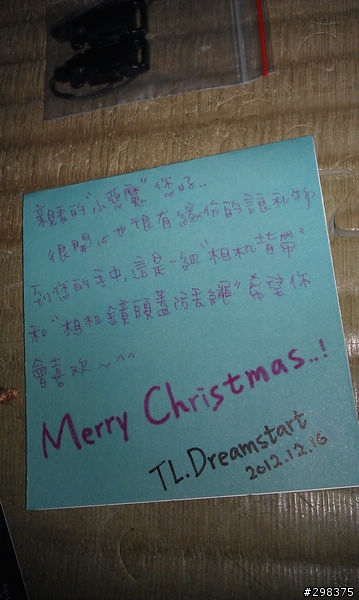 親愛的"小惡魔" 您好..
很開心也很有緣份的讓礼物
到您的手中,這是一組"相机背帶"
和"相机鏡頭蓋防丟繩"希望你
會喜欢~^^
Merry Christmas..!
TL.Dreamstart
2012.12.16
#298375